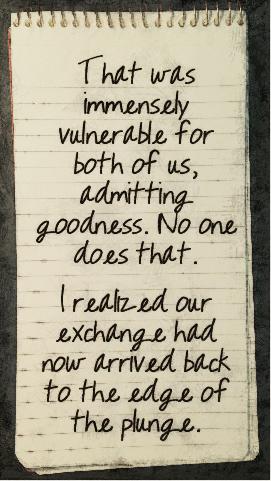 That was
immensely
vulnerable for
both of us,
admitting
goodness. No one
does that.
I realized our
exchange had
now arrived back
to the edge of
the plunge.